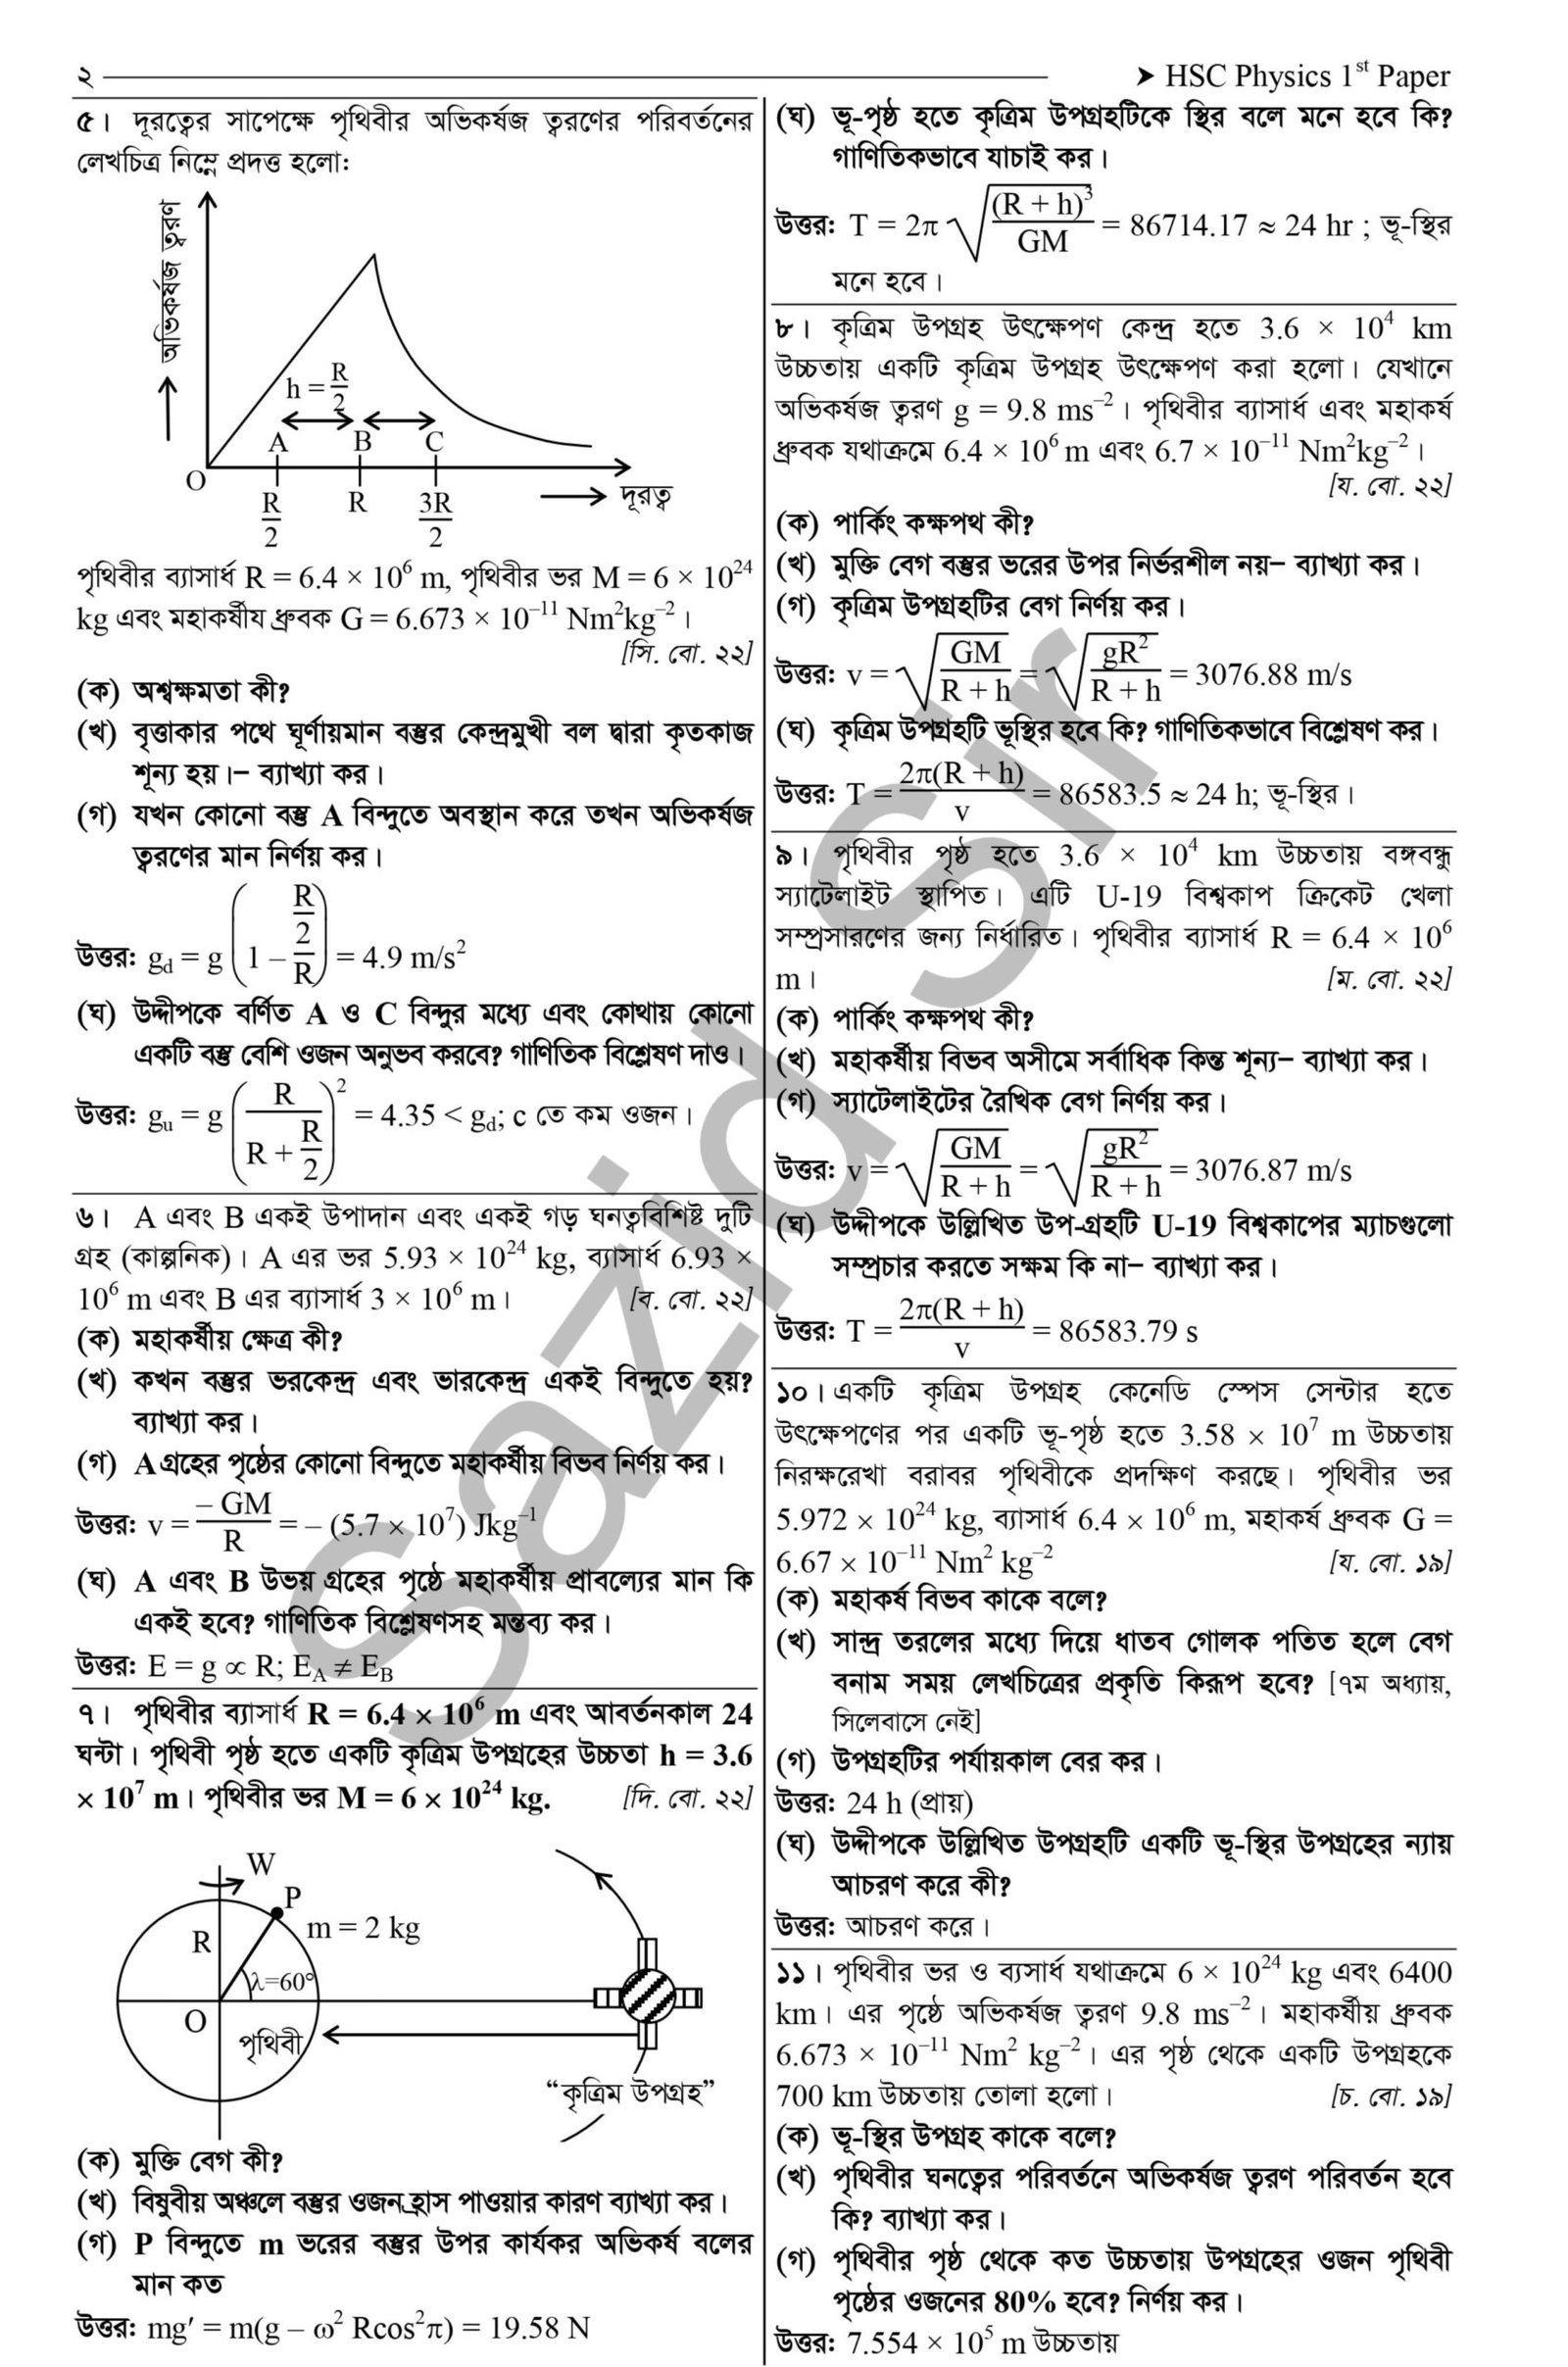 ২
➤ HSC Physics 1st Paper
৫। দূরত্বের সাপেক্ষে পৃথিবীর অভিকর্ষজ ত্বরণের পরিবর্তনের
লেখচিত্র নিম্নে প্রদত্ত হলো:
অভিকর্ষজ ত্বরণ
h = R/2
A B C
O
R/2 R 3R/2
দূরত্ব
পৃথিবীর ব্যাসার্ধ R = 6.4 × 10⁶ m, পৃথিবীর ভর M = 6 × 10²⁴
kg এবং মহাকর্ষীয় ধ্রুবক G = 6.673 × 10⁻¹¹ Nm²kg⁻²।
[সি. বো. ২২]
(ক) অশ্বক্ষমতা কী?
(খ) বৃত্তাকার পথে ঘূর্ণায়মান বস্তুর কেন্দ্রমুখী বল দ্বারা কৃতকাজ
শূন্য হয়।– ব্যাখ্যা কর।
(গ) যখন কোনো বস্তু A বিন্দুতে অবস্থান করে তখন অভিকর্ষজ
ত্বরণের মান নির্ণয় কর।
উত্তর: g_d = g (1 – (R/2)/R) = 4.9 m/s²
(ঘ) উদ্দীপকে বর্ণিত A ও C বিন্দুর মধ্যে এবং কোথায় কোনো
একটি বস্তু বেশি ওজন অনুভব করবে? গাণিতিক বিশ্লেষণ দাও।
উত্তর: g_u = g (R/(R + R/2))² = 4.35 < g_d; c তে কম ওজন।
৬। A এবং B একই উপাদান এবং একই গড় ঘনত্ববিশিষ্ট দুটি
গ্রহ (কাল্পনিক)। A এর ভর 5.93 × 10²⁴ kg, ব্যাসার্ধ 6.93 ×
10⁶ m এবং B এর ব্যাসার্ধ 3 × 10⁶ m। [ব. বো. ২২]
(ক) মহাকর্ষীয় ক্ষেত্র কী?
(খ) কখন বস্তুর ভরকেন্দ্র এবং ভারকেন্দ্র একই বিন্দুতে হয়?
ব্যাখ্যা কর।
(গ) A গ্রহের পৃষ্ঠের কোনো বিন্দুতে মহাকর্ষীয় বিভব নির্ণয় কর।
উত্তর: v = – GM/R = – (5.7 × 10⁷) Jkg⁻¹
(ঘ) A এবং B উভয় গ্রহের পৃষ্ঠে মহাকর্ষীয় প্রাবল্যের মান কি
একই হবে? গাণিতিক বিশ্লেষণসহ মন্তব্য কর।
উত্তর: E = g ∝ R; E_A ≠ E_B
৭। পৃথিবীর ব্যাসার্ধ R = 6.4 × 10⁶ m এবং আবর্তনকাল 24
ঘন্টা। পৃথিবী পৃষ্ঠ হতে একটি কৃত্রিম উপগ্রহের উচ্চতা h = 3.6
× 10⁷ m। পৃথিবীর ভর M = 6 × 10²⁴ kg. [দি. বো. ২২]
W
P
R
m = 2 kg
λ=60°
O
পৃথিবী
“কৃত্রিম উপগ্রহ”
(ক) মুক্তি বেগ কী?
(খ) বিষুবীয় অঞ্চলে বস্তুর ওজন হ্রাস পাওয়ার কারণ ব্যাখ্যা কর।
(গ) P বিন্দুতে m ভরের বস্তুর উপর কার্যকর অভিকর্ষ বলের
মান কত
উত্তর: mg′ = m(g – ω² Rcos²π) = 19.58 N
(ঘ) ভূ-পৃষ্ঠ হতে কৃত্রিম উপগ্রহটিকে স্থির বলে মনে হবে কি?
গাণিতিকভাবে যাচাই কর।
উত্তর: T = 2π √((R + h)³/GM) = 86714.17 ≈ 24 hr ; ভূ-স্থির
মনে হবে।
৮। কৃত্রিম উপগ্রহ উৎক্ষেপণ কেন্দ্র হতে 3.6 × 10⁴ km
উচ্চতায় একটি কৃত্রিম উপগ্রহ উৎক্ষেপণ করা হলো। যেখানে
অভিকর্ষজ ত্বরণ g = 9.8 ms⁻²। পৃথিবীর ব্যাসার্ধ এবং মহাকর্ষ
ধ্রুবক যথাক্রমে 6.4 × 10⁶ m এবং 6.7 × 10⁻¹¹ Nm²kg⁻²।
[য. বো. ২২]
(ক) পার্কিং কক্ষপথ কী?
(খ) মুক্তি বেগ বস্তুর ভরের উপর নির্ভরশীল নয়– ব্যাখ্যা কর।
(গ) কৃত্রিম উপগ্রহটির বেগ নির্ণয় কর।
উত্তর: v = √(GM/(R + h)) = √(gR²/(R + h)) = 3076.88 m/s
(ঘ) কৃত্রিম উপগ্রহটি ভূস্থির হবে কি? গাণিতিকভাবে বিশ্লেষণ কর।
উত্তর: T = 2π(R + h)/v = 86583.5 ≈ 24 h; ভূ-স্থির।
৯। পৃথিবীর পৃষ্ঠ হতে 3.6 × 10⁴ km উচ্চতায় বঙ্গবন্ধু
স্যাটেলাইট স্থাপিত। এটি U-19 বিশ্বকাপ ক্রিকেট খেলা
সম্প্রসারণের জন্য নির্ধারিত। পৃথিবীর ব্যাসার্ধ R = 6.4 × 10⁶
m। [ম. বো. ২২]
(ক) পার্কিং কক্ষপথ কী?
(খ) মহাকর্ষীয় বিভব অসীমে সর্বাধিক কিন্তু শূন্য– ব্যাখ্যা কর।
(গ) স্যাটেলাইটের রৈখিক বেগ নির্ণয় কর।
উত্তর: v = √(GM/(R + h)) = √(gR²/(R + h)) = 3076.87 m/s
(ঘ) উদ্দীপকে উল্লিখিত উপ-গ্রহটি U-19 বিশ্বকাপের ম্যাচগুলো
সম্প্রচার করতে সক্ষম কি না– ব্যাখ্যা কর।
উত্তর: T = 2π(R + h)/v = 86583.79 s
১০। একটি কৃত্রিম উপগ্রহ কেনেডি স্পেস সেন্টার হতে
উৎক্ষেপণের পর একটি ভূ-পৃষ্ঠ হতে 3.58 × 10⁷ m উচ্চতায়
নিরক্ষরেখা বরাবর পৃথিবীকে প্রদক্ষিণ করছে। পৃথিবীর ভর
5.972 × 10²⁴ kg, ব্যাসার্ধ 6.4 × 10⁶ m, মহাকর্ষ ধ্রুবক G =
6.67 × 10⁻¹¹ Nm² kg⁻² [য. বো. ১৯]
(ক) মহাকর্ষ বিভব কাকে বলে?
(খ) সান্দ্র তরলের মধ্যে দিয়ে ধাতব গোলক পতিত হলে বেগ
বনাম সময় লেখচিত্রের প্রকৃতি কিরূপ হবে? [৭ম অধ্যায়,
সিলেবাসে নেই]
(গ) উপগ্রহটির পর্যায়কাল বের কর।
উত্তর: 24 h (প্রায়)
(ঘ) উদ্দীপকে উল্লিখিত উপগ্রহটি একটি ভূ-স্থির উপগ্রহের ন্যায়
আচরণ করে কী?
উত্তর: আচরণ করে।
১১। পৃথিবীর ভর ও ব্যসার্ধ যথাক্রমে 6 × 10²⁴ kg এবং 6400
km। এর পৃষ্ঠে অভিকর্ষজ ত্বরণ 9.8 ms⁻²। মহাকর্ষীয় ধ্রুবক
6.673 × 10⁻¹¹ Nm² kg⁻²। এর পৃষ্ঠ থেকে একটি উপগ্রহকে
700 km উচ্চতায় তোলা হলো। [চ. বো. ১৯]
(ক) ভূ-স্থির উপগ্রহ কাকে বলে?
(খ) পৃথিবীর ঘনত্বের পরিবর্তনে অভিকর্ষজ ত্বরণ পরিবর্তন হবে
কি? ব্যাখ্যা কর।
(গ) পৃথিবীর পৃষ্ঠ থেকে কত উচ্চতায় উপগ্রহের ওজন পৃথিবী
পৃষ্ঠের ওজনের 80% হবে? নির্ণয় কর।
উত্তর: 7.554 × 10⁵ m উচ্চতায়
Sazid Sir